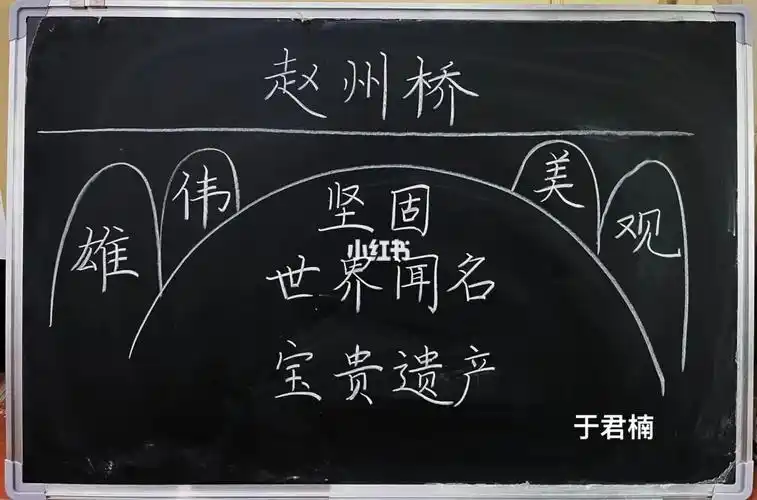 赵州桥
雄 伟 坚固 美 观
小红书
世界闻名
宝贵遗产
于君楠